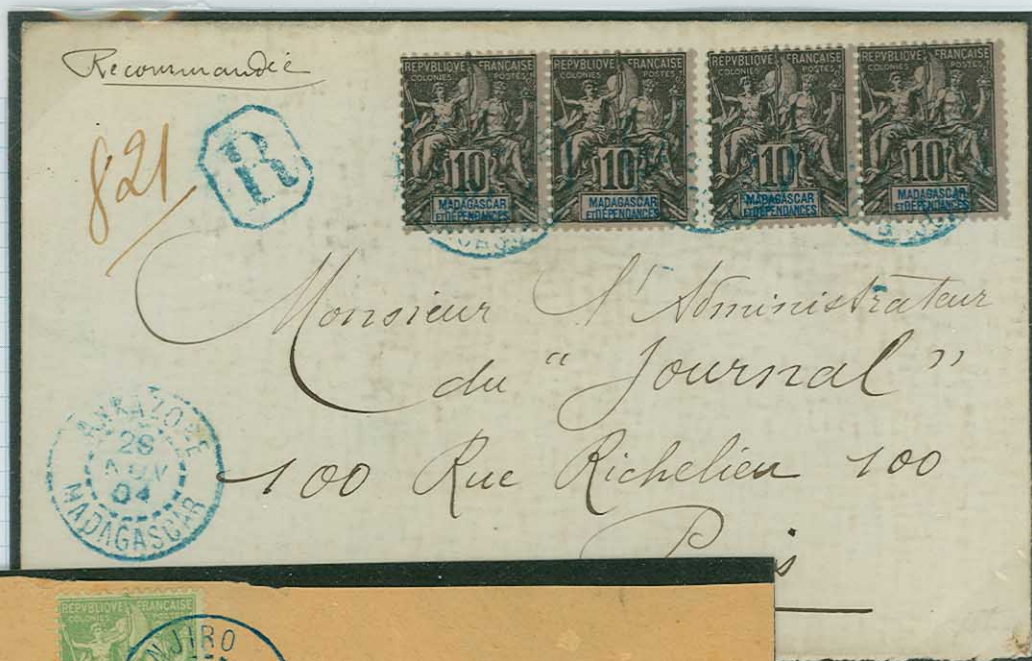 Recommandée
821
R
REPVBLIQUE FRANÇAISE
COLONIES POSTES
10
MADAGASCAR
ET DÉPENDANCES
REPVBLIQUE FRANÇAISE
COLONIES POSTES
10
MADAGASCAR
ET DÉPENDANCES
REPVBLIQUE FRANÇAISE
COLONIES POSTES
10
MADAGASCAR
ET DÉPENDANCES
REPVBLIQUE FRANÇAISE
COLONIES POSTES
10
MADAGASCAR
ET DÉPENDANCES
Monsieur l'Administrateur
du "Journal"
100 Rue Richelieu 100
ANKAZOBE
28
NOV
04
MADAGASCAR
REPVBLIQUE FRANÇAISE
COLONIES POSTES
NJIRO